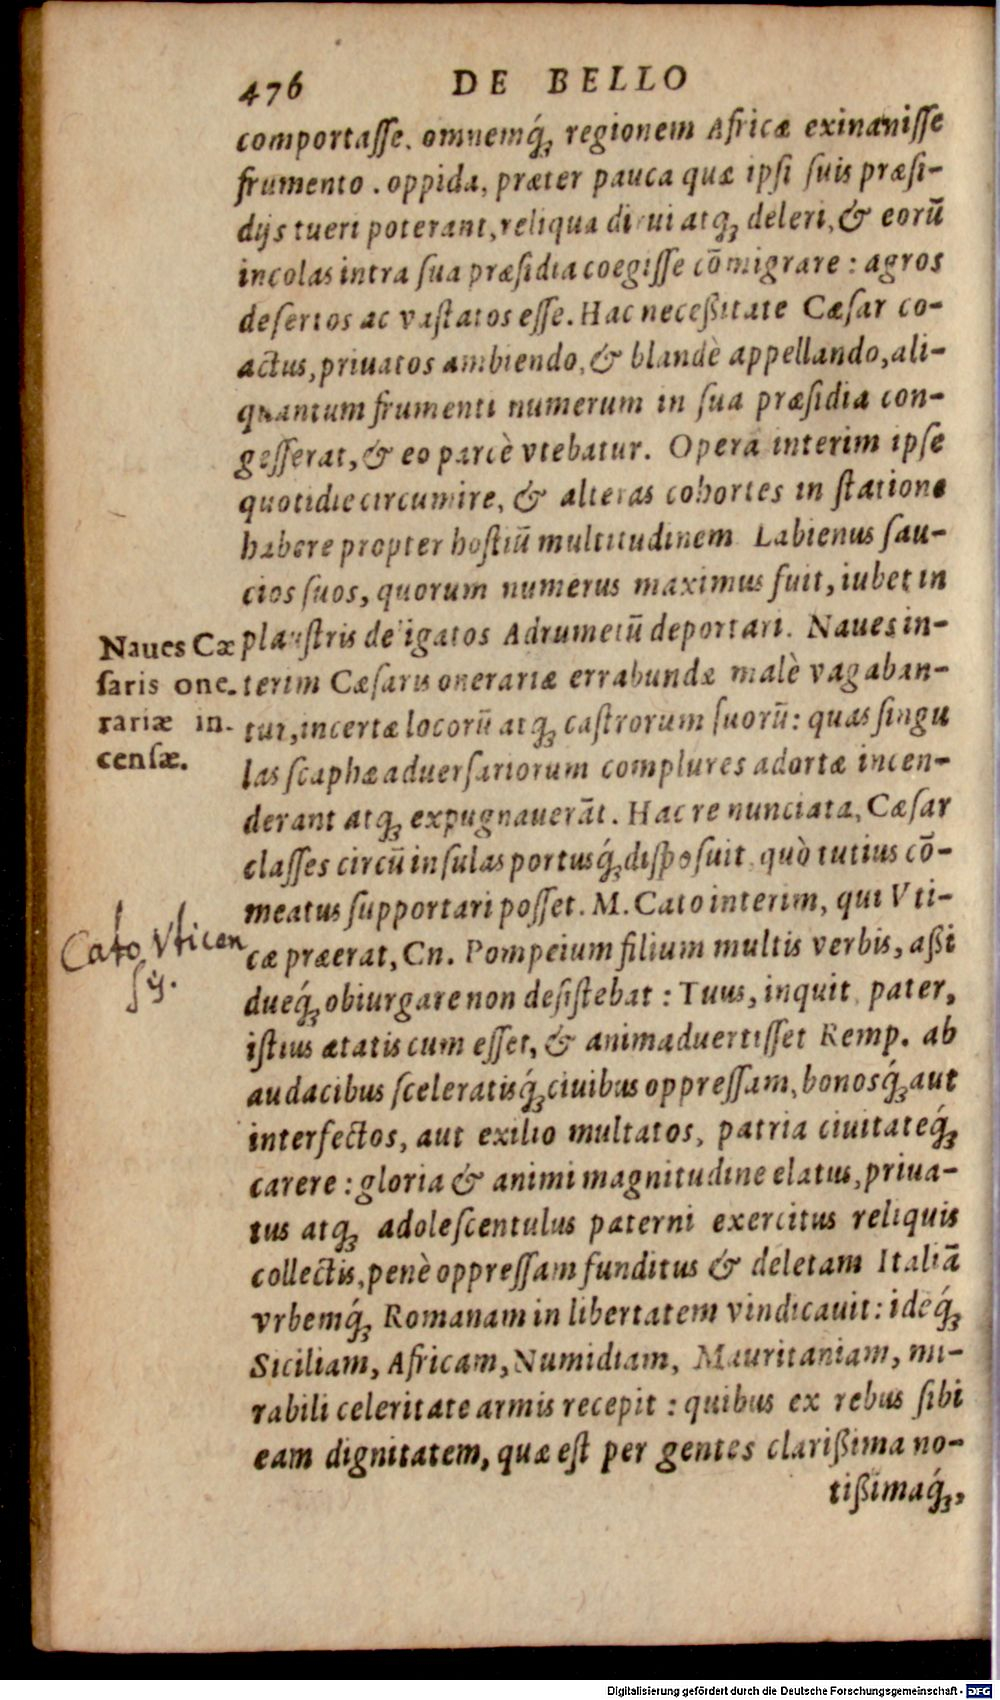 476 DE BELLO
comportasse. omnemq́ꝫ regionem Africæ exinanisse
frumento. oppida, præter pauca quæ ipsi suis præsi-
dijs tueri poterant, reliqua dirui atqꝫ deleri, & eorū
incolas intra sua præsidia coegisse cōmigrare: agros
desertos ac vastatos esse. Hac neceßitate Cæsar co-
actus, priuatos ambiendo, & blandè appellando, ali-
quantum frumenti numerum in sua præsidia con-
gesserat, & eo parcè vtebatur. Opera interim ipse
quotidie circumire, & alteras cohortes in statione
habere propter hostiū multitudinem Labienus sau-
cios suos, quorum numerus maximus fuit, iubet in
plaustris deligatos Adrumetū deportari. Naues in-
terim Cæsaris onerariæ errabundæ malè vagaban-
tur, incertæ locorū atqꝫ castrorum suorū: quas singu
las scaphæ aduersariorum complures adortæ incen-
derant atqꝫ expugnauerāt. Hac re nunciata, Cæsar
classes circū insulas portusq́ꝫ disposuit, quò tutius cō-
meatus supportari posset. M. Cato interim, qui Vti-
cæ præerat, Cn. Pompeium filium multis verbis, aßi
dueq́ꝫ obiurgare non desistebat: Tuus, inquit, pater,
istius ætatis cum esset, & animaduertisset Remp. ab
audacibus sceleratisq́ꝫ ciuibus oppressam, bonosq́ꝫ aut
interfectos, aut exilio multatos, patria ciuitateq́ꝫ
carere: gloria & animi magnitudine elatus, priua-
tus atqꝫ adolescentulus paterni exercitus reliquis
collectis, penè oppressam funditus & deletam Italiā
vrbemq́ꝫ Romanam in libertatem vindicauit: ideq́ꝫ
Siciliam, Africam, Numidiam, Mauritaniam, mi-
rabili celeritate armis recepit: quibus ex rebus sibi
eam dignitatem, quæ est per gentes clarißima no-
tißimaq́ꝫ,
Naues Cæ
saris one-
rariæ in-
censæ.
Cato Vticen
sis.
Digitalisierung gefördert durch die Deutsche Forschungsgemeinschaft - DFG